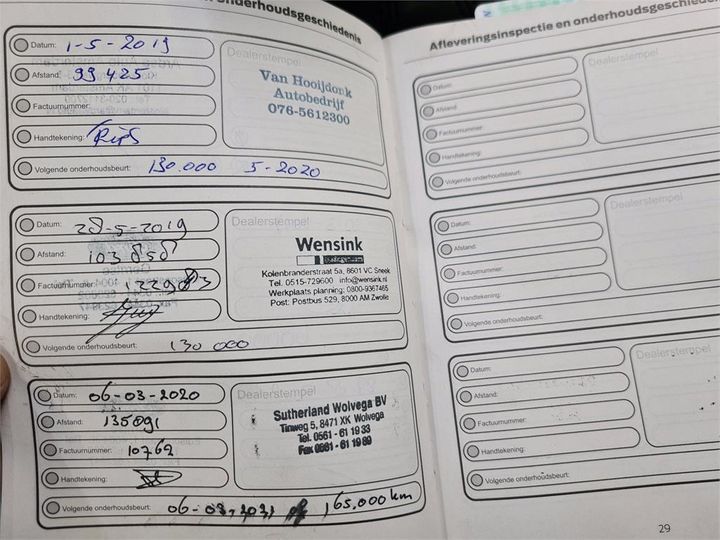 onderhoudsgeschiedenis
Datum: 1-5-2019
Afstand: 99425
Factuurnummer:
Handtekening:
Volgende onderhoudsbeurt: 130.000 5-2020
Dealerstempel
Van Hooijdonk
Autobedrijf
076-5612300
Datum: 28-5-2019
Afstand: 103858
Factuurnummer:
Handtekening:
Volgende onderhoudsbeurt: 130 000
Dealerstempel
Wensink
Kolenbranderstraat 5a, 8601 VC Sneek
Tel. 0515-729600 info@wensink.nl
Werkplaats planning: 0800-9367465
Post: Postbus 529, 8000 AM Zwolle
Datum: 06-03-2020
Afstand: 135091
Factuurnummer: 10762
Handtekening:
Volgende onderhoudsbeurt: 06-03-2021 165.000 km
Dealerstempel
Sutherland Wolvega BV
Tinweg 5, 8471 XK Wolvega
Tel. 0561 - 61 19 33
Fax 0561 - 61 19 89
Afleveringsinspectie en onderhoudsgeschiedenis
Datum:
Afstand:
Factuurnummer:
Handtekening:
Volgende onderhoudsbeurt:
Dealerstempel
Datum:
Afstand:
Factuurnummer:
Handtekening:
Volgende onderhoudsbeurt:
Dealerstempel
Datum:
Afstand:
Factuurnummer:
Handtekening:
Volgende onderhoudsbeurt:
Dealerstempel
29